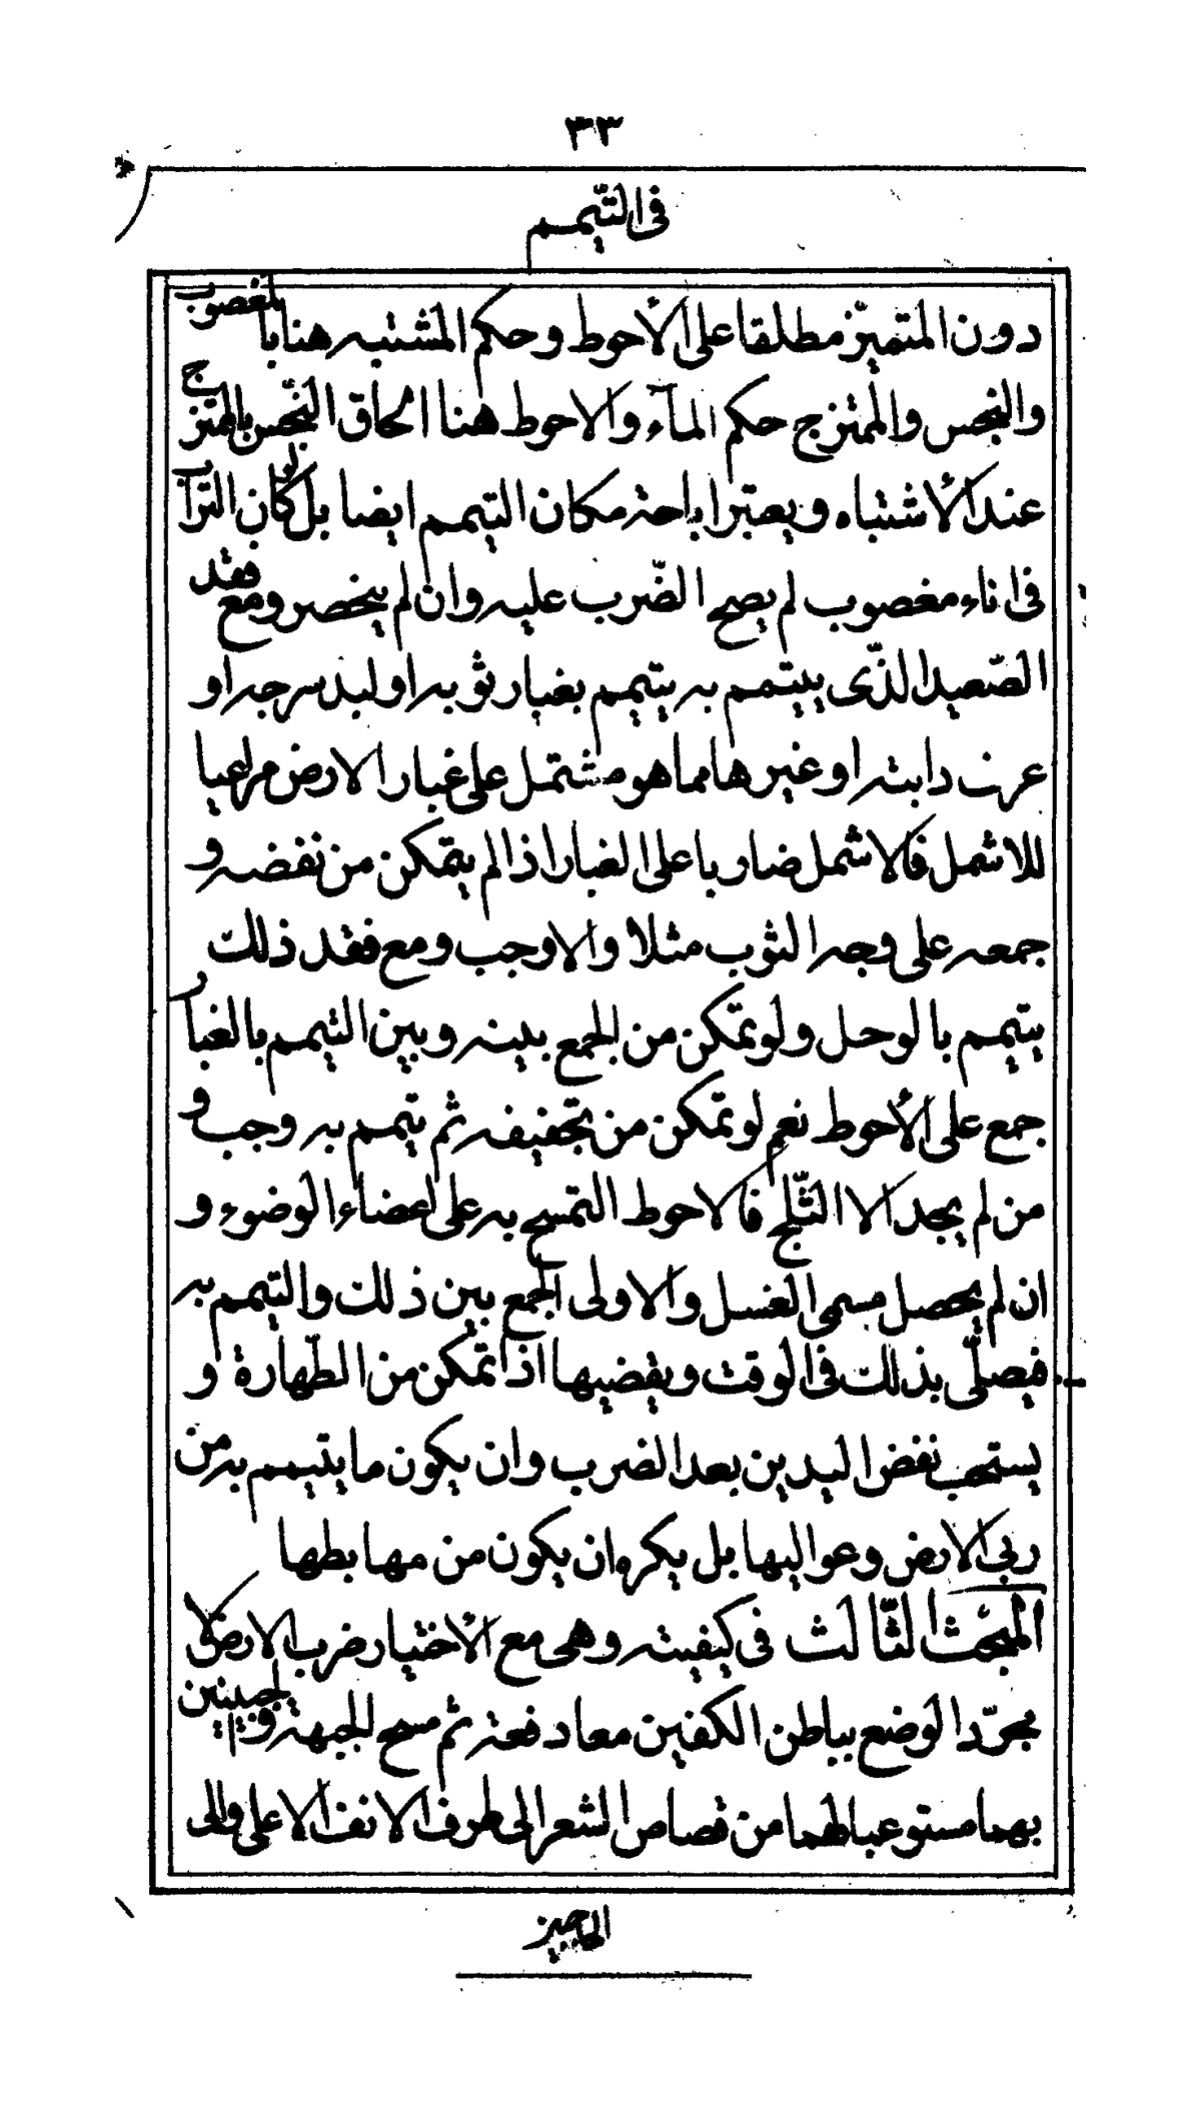 ٣٣
فى التيمم
دون المتميّز مطلقا على الأحوط وحكم المشتبه هنا بالمغصوب
والنجس والممتزج حكم المآء والاحوط هنا الحاق النّجس بالممتزج
عند الأشتباه ويعتبر اباحة مكان التيمم ايضا بل لو كان التراب
فى اناء مغصوب لم يصح الضّرب عليه وان لم ينحصر ومع فقد
الصّعيد الذّى يتيمم به يتيمم بغبار ثوبه او لبد سرجه او
عرف دابته او غيرها مما هو مشتمل على غبار الارض مراعيا
للاشمل فالاشمل ضاربا على الغبار اذا لم يتمكن من نفضه و
جمعه على وجه الثوب مثلا والا وجب ومع فقد ذلك
يتيمم بالوحل ولو تمكن من الجمع بينه وبين التيمم بالغبار
جمع على الأحوط نعم لو تمكن من تجفيفه ثم يتمم به وجب و
من لم يجد الا الثّلج فالاحوط التمسح به على اعضاء الوضوء و
ان لم يحصل مسمى الغسل والاولى الجمع بين ذلك والتيمم به
فيصلّى بذلك فى الوقت ويقضيها اذا تمكن من الطّهارة و
يستحب نفض اليدين بعد الضرب وان يكون ما يتيمم به من
ربى الارض وعواليها بل يكره ان يكون من مهابطها
المبحث الثّالث فى كيفيته وهى مع الأختيار ضرب الارض لا
مجرّد الوضع بباطن الكفين معا دفعة ثم مسح الجبهة والجبينين
بهما مستوعبا لهما من قصاص الشعر الى طرف الانف الاعلى والى
الحاجبين